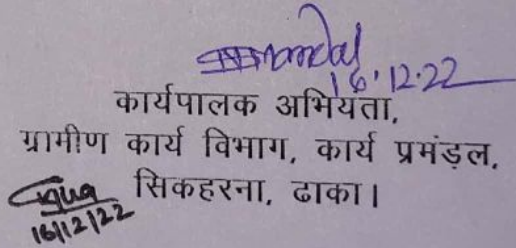 16.12.22
कार्यपालक अभियता,
ग्रामीण कार्य विभाग, कार्य प्रमंड़ल,
सिकहरना, ढाका।
16/12/22